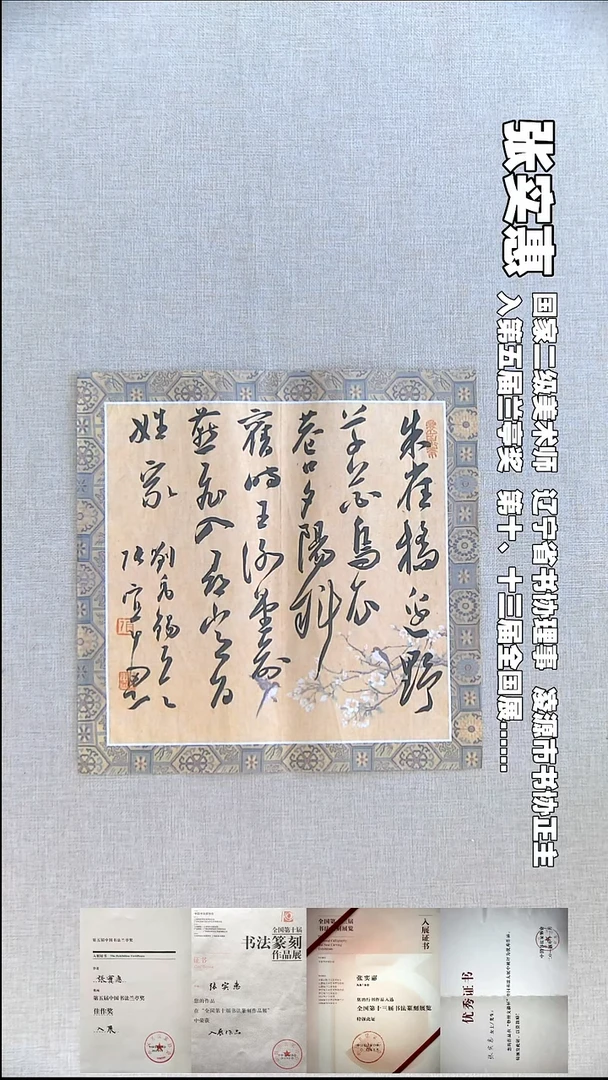 张实惠
国家二级美术师 辽宁省书协理事 凌源市书协正主
入第五届兰亭奖 第十、十三届全国展……
朱雀橋邊野
草花烏衣
巷口夕陽斜
舊時王謝堂前
燕飛入尋常百
姓家
劉禹錫
第五届中国书法兰亭奖
张实惠
第五届中国书法兰亭奖
佳作奖
入展
全国第十届
书法篆刻
作品展
证书
张实惠
您的作品
在“全国第十届书法篆刻作品展”
中荣获
入展作品
入展证书
张实惠
全国第十三届书法篆刻展览
特颁此证
优秀证书